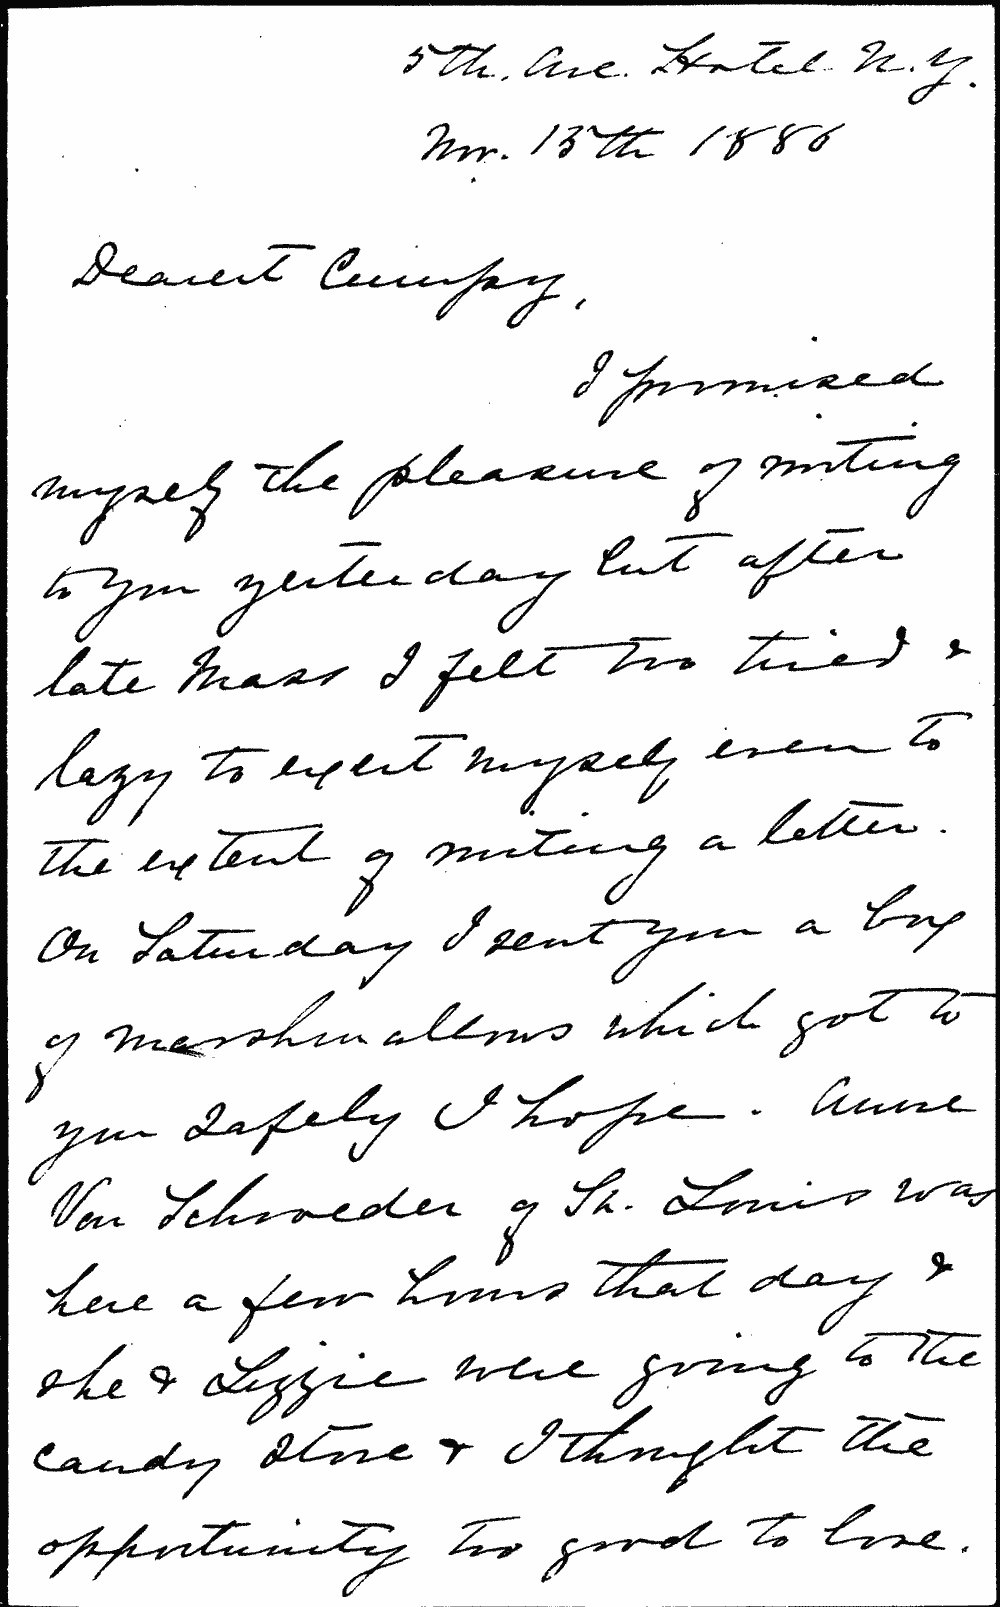 5th. Ave. Hotel N.Y.
Nov. 15th 1886
Dearest Cumpy,
I promised
myself the pleasure of writing
to you yesterday but after
late Mass I felt too tired &
lazy to exert myself even to
the extent of writing a letter.
On Saturday I sent you a box
of marshmallows which got to
you safely I hope. Anne
Von Schroeder of St. Louis was
here a few hours that day &
she & Lizzie were going to the
candy store & I thought the
opportunity too good to lose.